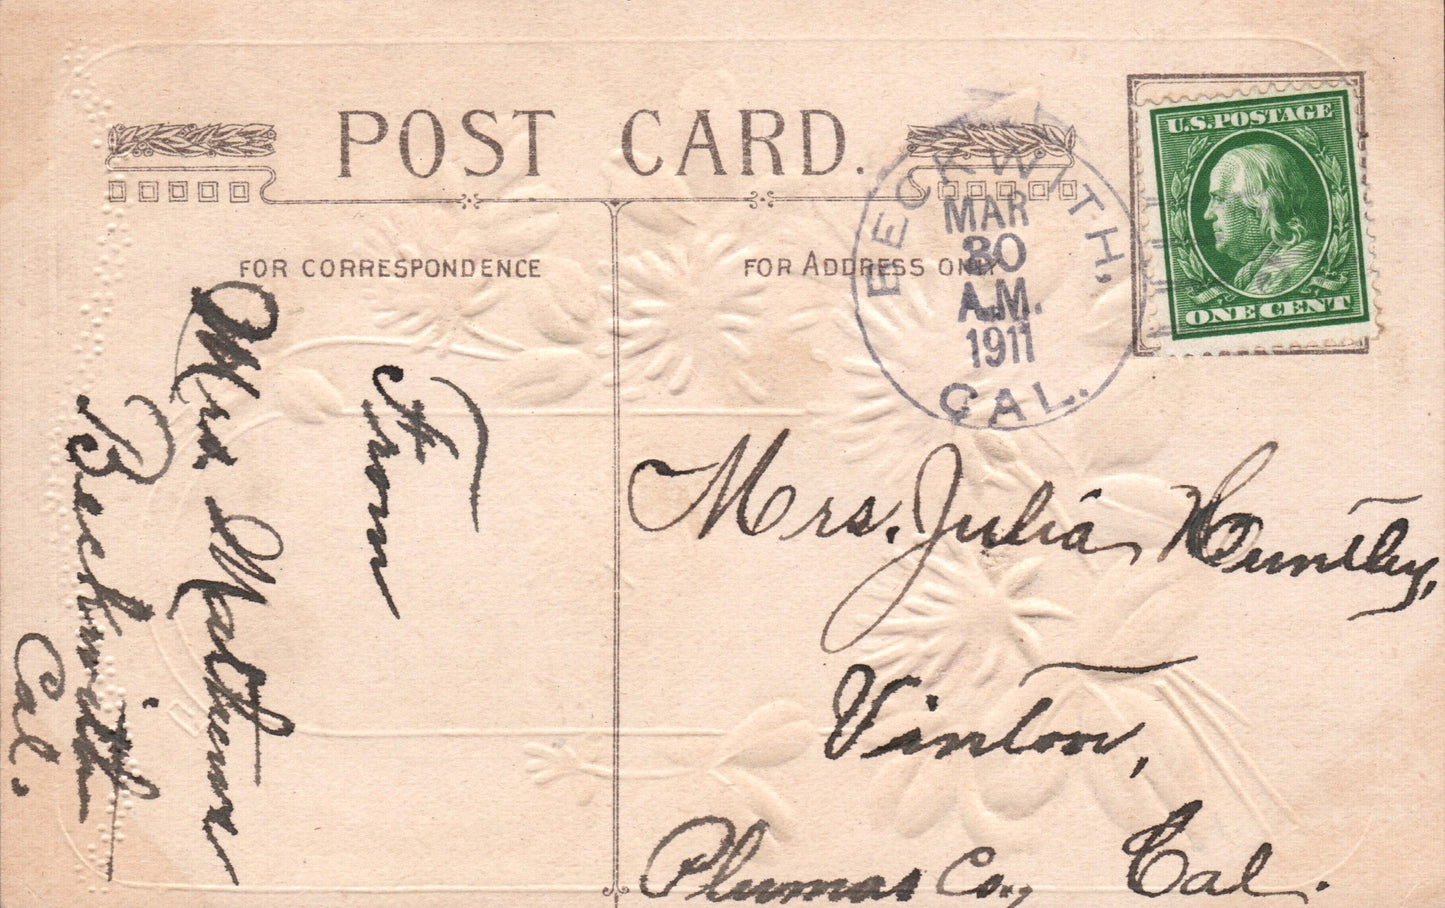 POST CARD.
FOR CORRESPONDENCE
FOR ADDRESS ONLY
BECKWITH,
MAR
30
A.M.
1911
CAL.
U.S. POSTAGE
ONE CENT
From
Mrs
Beckwith
Cal.
Mrs. Julia Huntley,
Vinton,
Plumas Co., Cal.